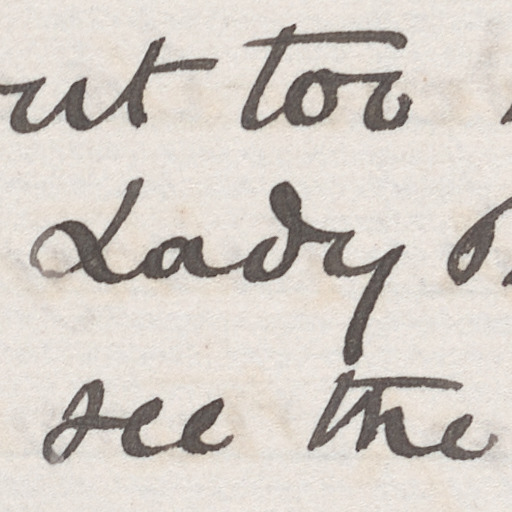 too
Lady
see the